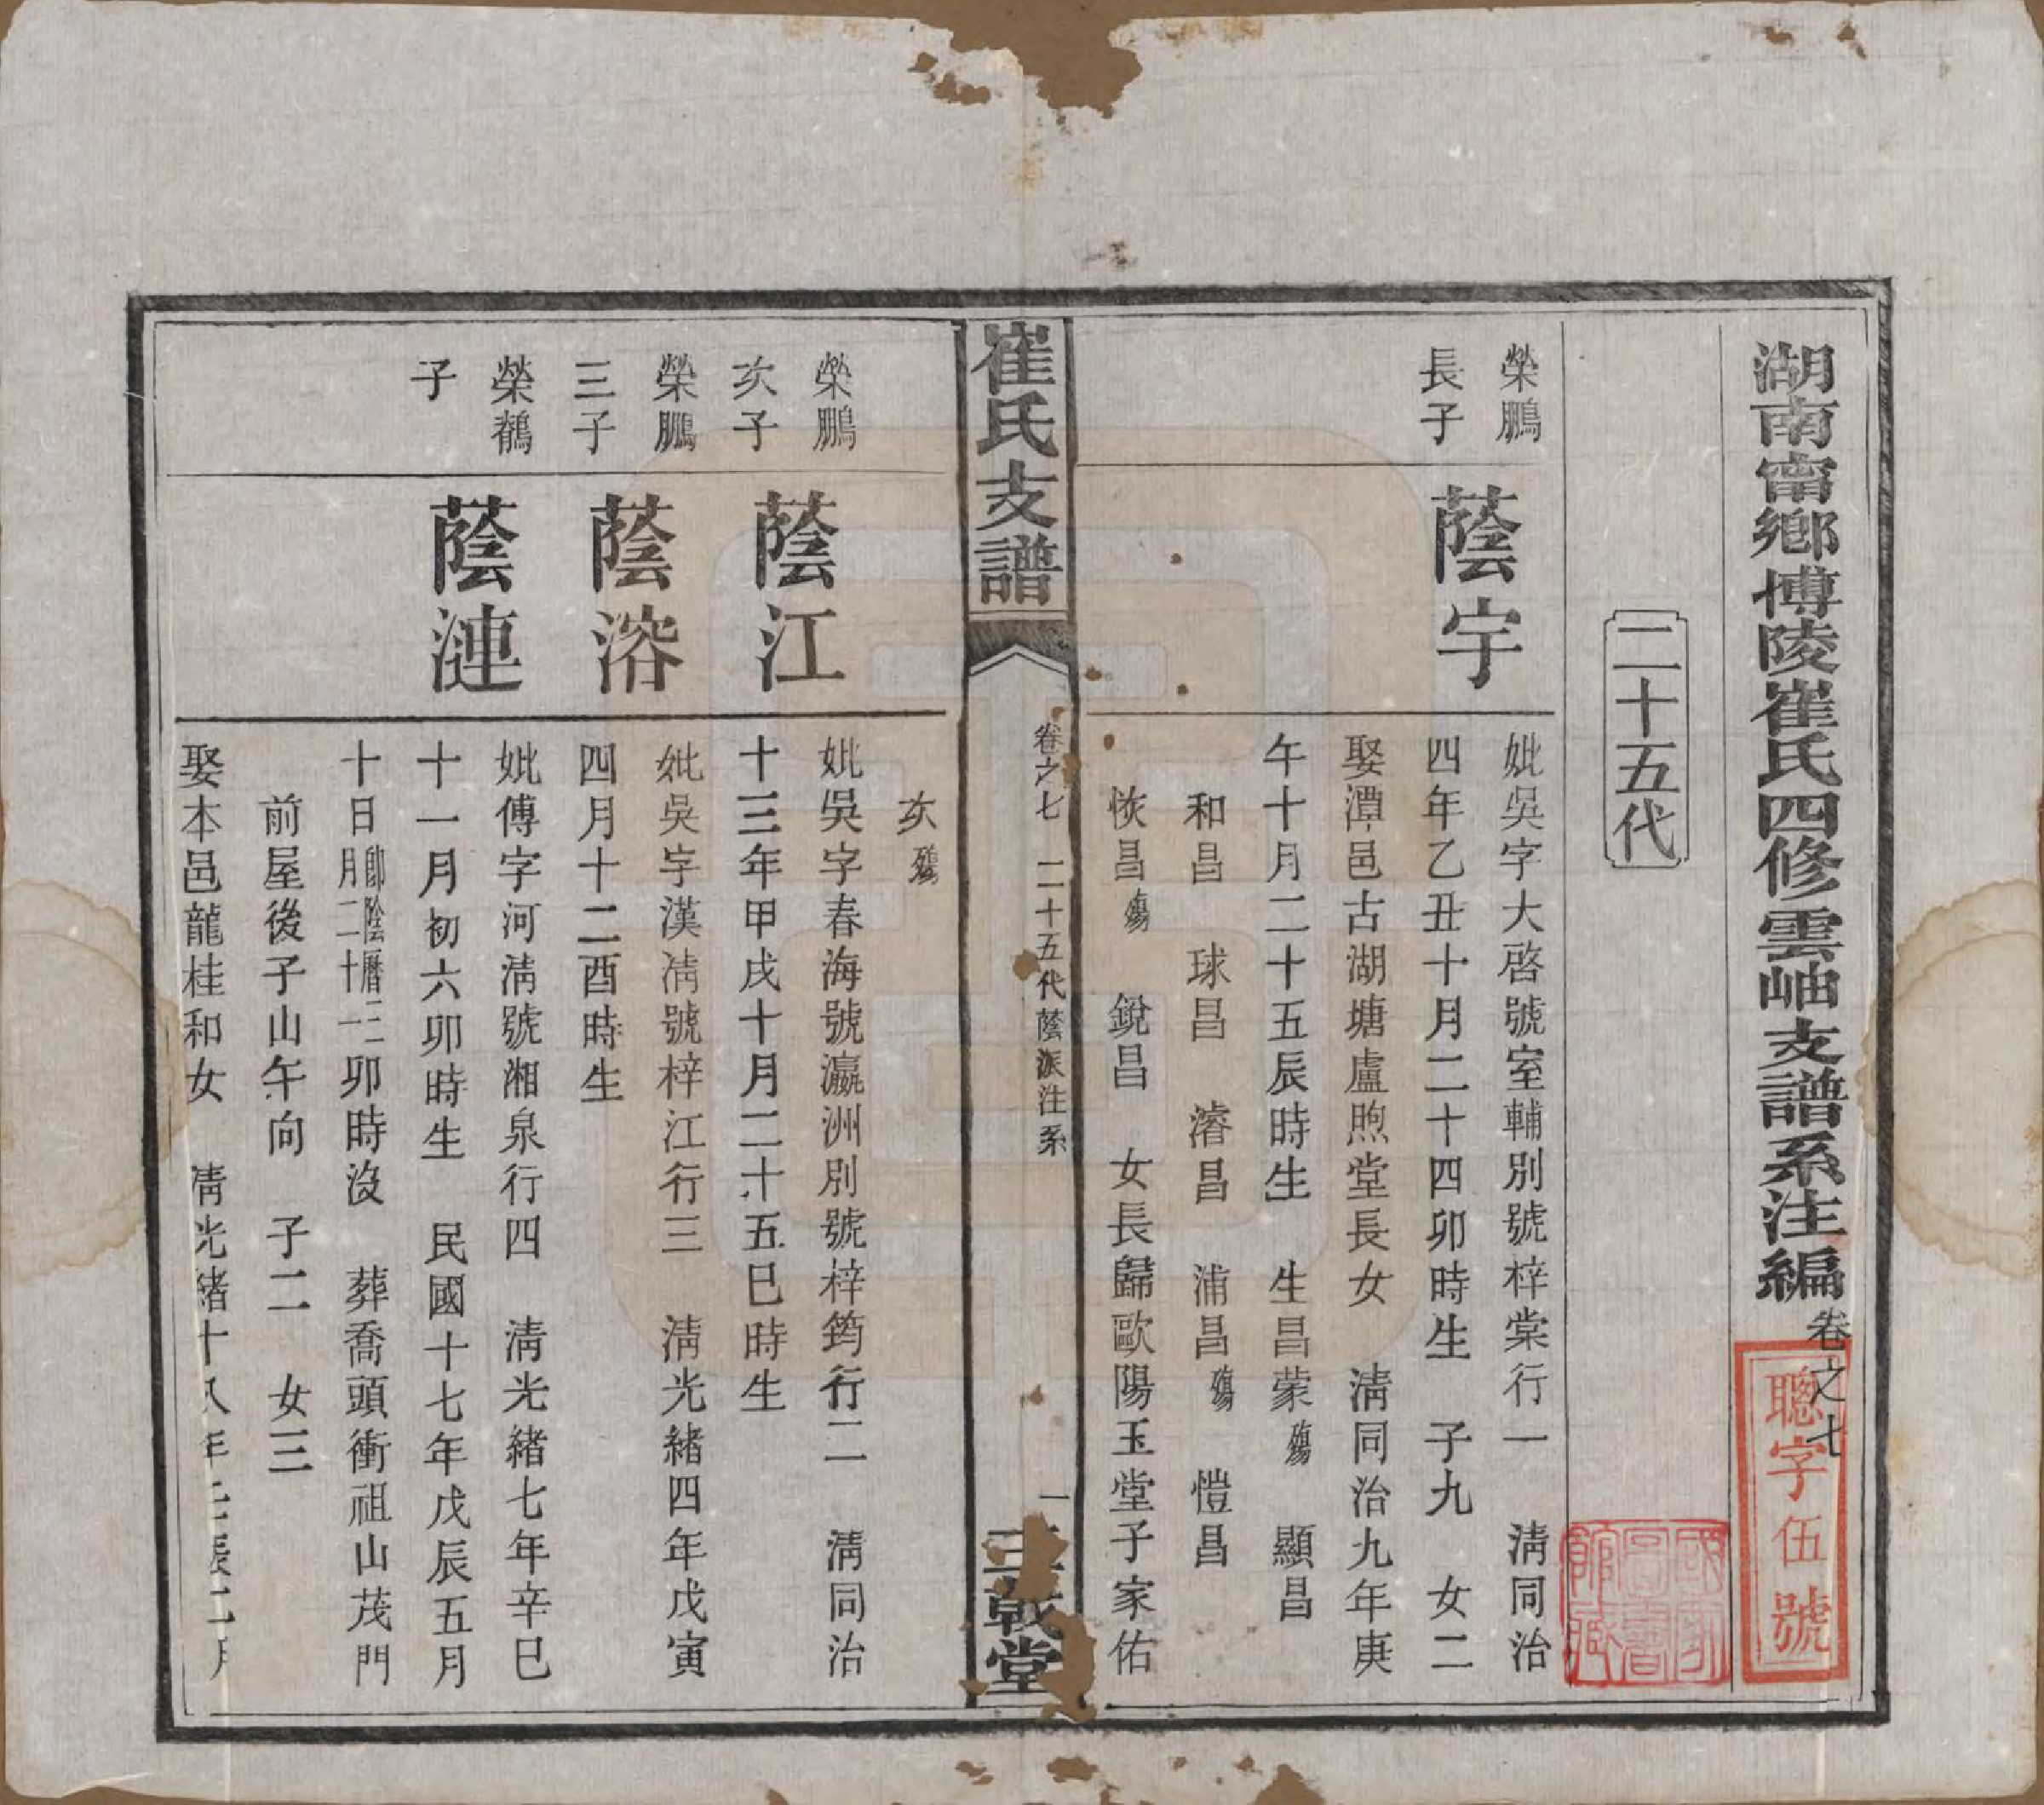 湖南甯鄉博陵崔氏四修雲岫支譜系注編卷之七
聰字伍號
國家圖書館藏
二十五代
榮鵬
長子
蔭宇
妣吳字大啓號室輔別號梓棠行一　清同治
四年乙丑十月二十四卯時生　子九　女二
娶潭邑古湖塘盧煦堂長女　清同治九年庚
午十月二十五辰時生　生昌蒙殤　顯昌
和昌　球昌　濬昌　浦昌殤　愷昌
恢昌殤　銳昌　女長歸歐陽玉堂子家佑
崔氏支譜
卷之七　二十五代蔭派注系
一
三戟堂
次殤
榮鵬
次子
蔭江
妣吳字春海號瀛洲別號梓筠行二　清同治
十三年甲戌十月二十五巳時生
榮鵬
三子
蔭溶
妣吳字漢清號梓江行三　清光緒四年戊寅
四月十二酉時生
榮鶴
子
蔭漣
妣傅字河清號湘泉行四　清光緒七年辛巳
十一月初六卯時生　民國十七年戊辰五月
十日即陰曆三月二十一卯時沒　葬喬頭衝祖山茂門
前屋後子山午向　子二　女三
娶本邑龍桂和女　清光緒十八年壬辰二月